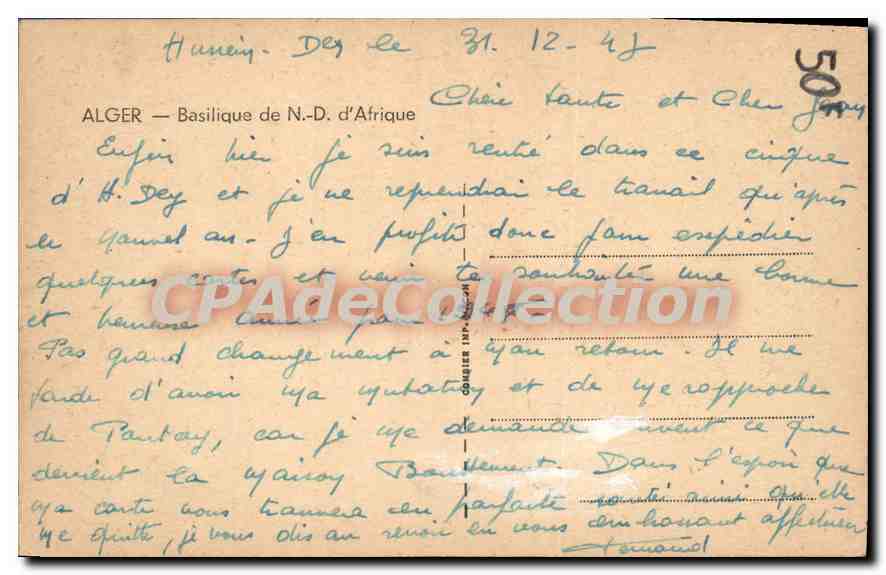 Hussein-Dey le 31-12-47
50F
ALGER — Basilique de N.-D. d'Afrique
Chère tante et Cher
Enfin hier je suis rentré dans ce cirque
d'H. Dey et je ne reprendrai le travail qu'après
le nouvel an - J'en profite donc pour expédier
quelques cartes et venir te souhaiter une bonne
et heureuse année pour
CPAdeCollection
COMBIER IMP. MACON
Pas grand changement à mon retour. Il me
tarde d'avoir ma mutation et de me rapprocher
de car je me demande souvent ce que
devient la maison Dans l'espoir que
ma carte vous trouvera en parfaite santé ainsi qu'elle
me quitte, je vous dis au revoir en vous embrassant
Fernand